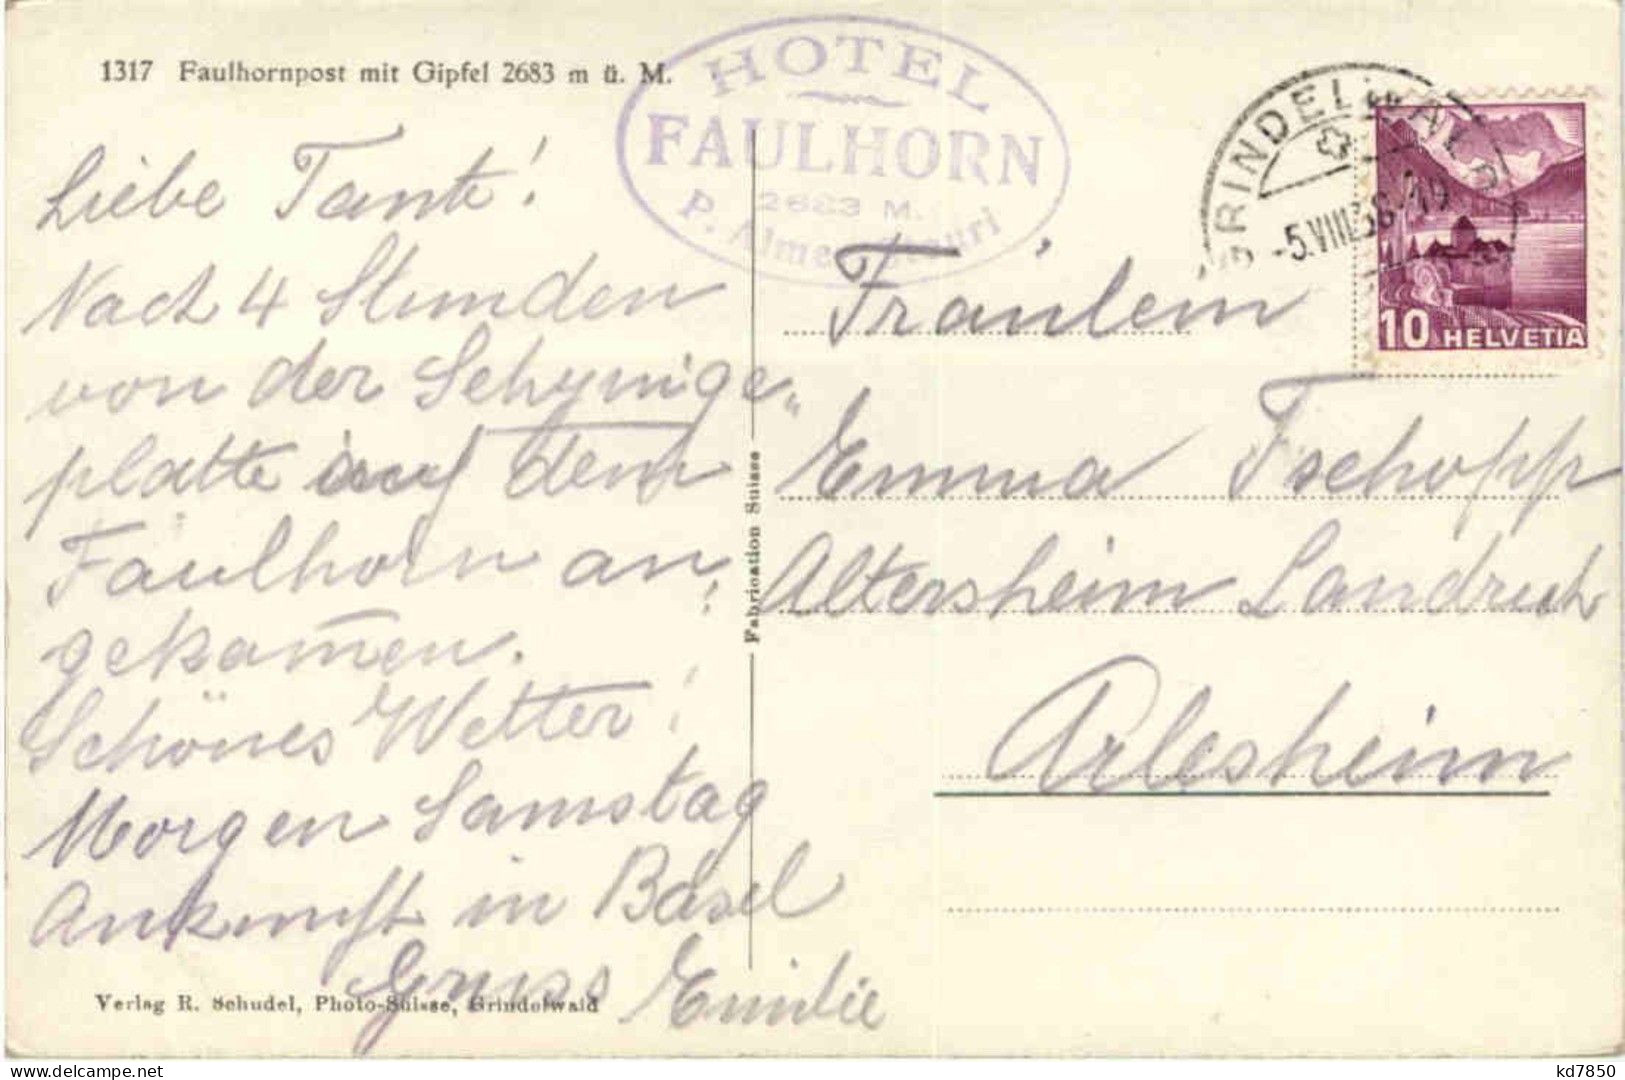 1317 Faulhornpost mit Gipfel 2683 m ü. M.
HOTEL
FAULHORN
2683 M.
GRINDELWALD
-5.VIII.38.-19
10 HELVETIA
Liebe Tante!
Nach 4 Stunden
von der Schynige„
platte auf dem
Faulhorn an„
gekom̄en.
Schönes Wetter!
Morgen Samstag
Ankunft in Basel
Gruss Emilie
Fabrication Suisse
Fräulein
Emma Tschopp
Altersheim Landruh
Arlesheim
Verlag R. Schudel, Photo-Suisse, Grindelwald
kd7850